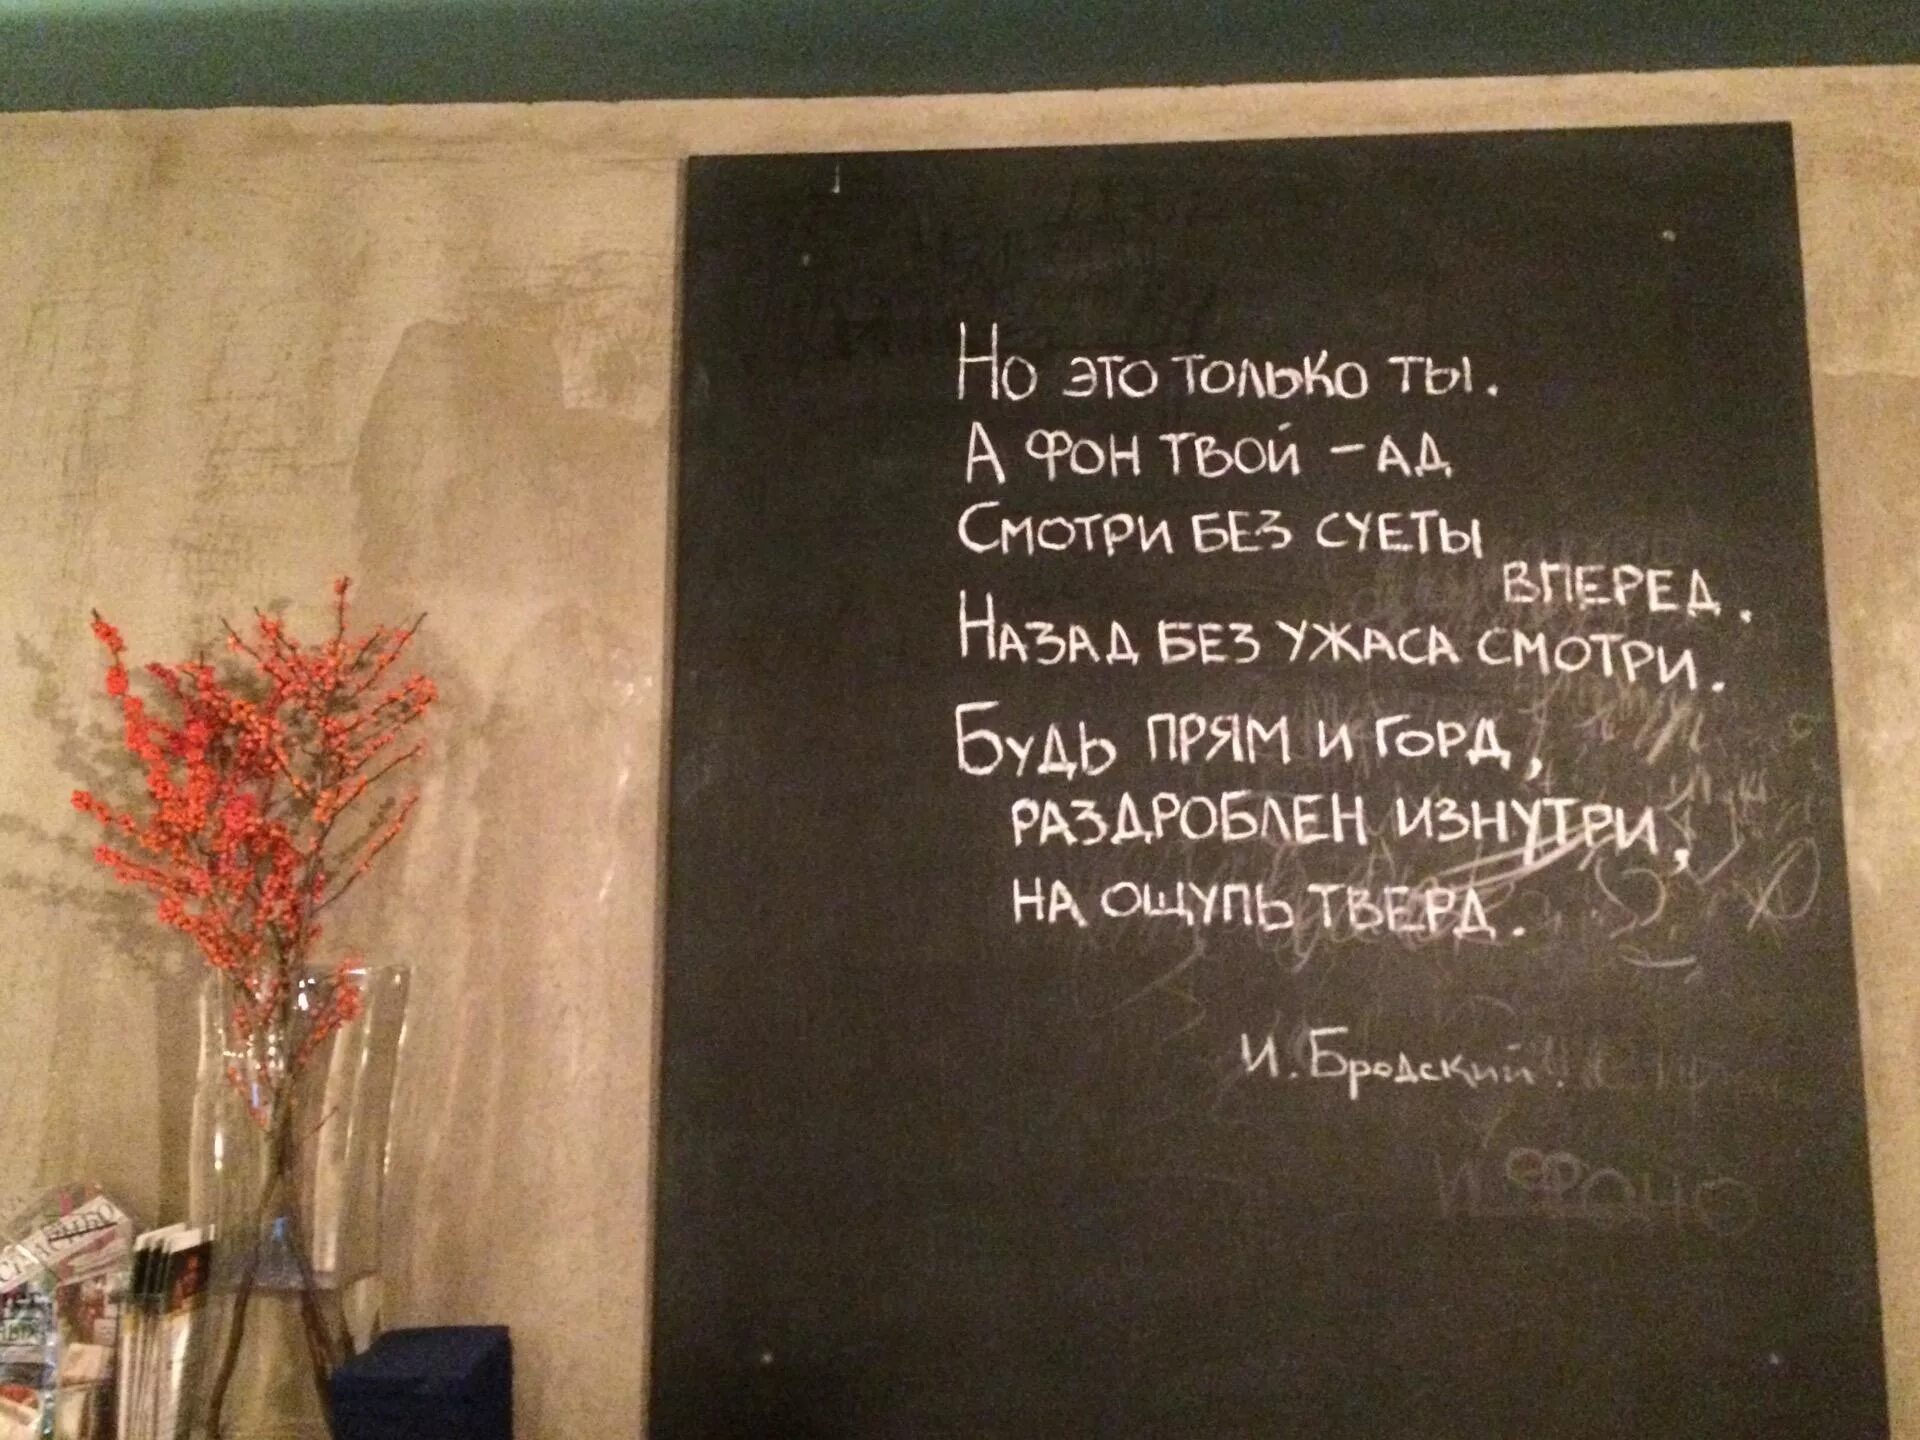 Но это только ты.
А фон твой – ад
Смотри без суеты
вперед.
Назад без ужаса смотри.
Будь прям и горд,
раздроблен изнутри,
на ощупь тверд.
И. Бродский.